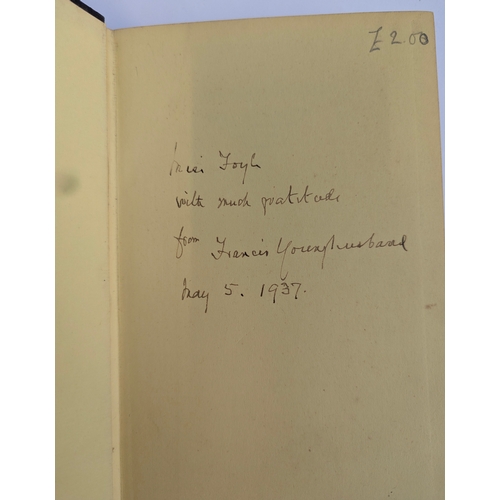 £2.00
Miss Foyle
with much gratitude
from Francis Younghusband
May 5. 1937.